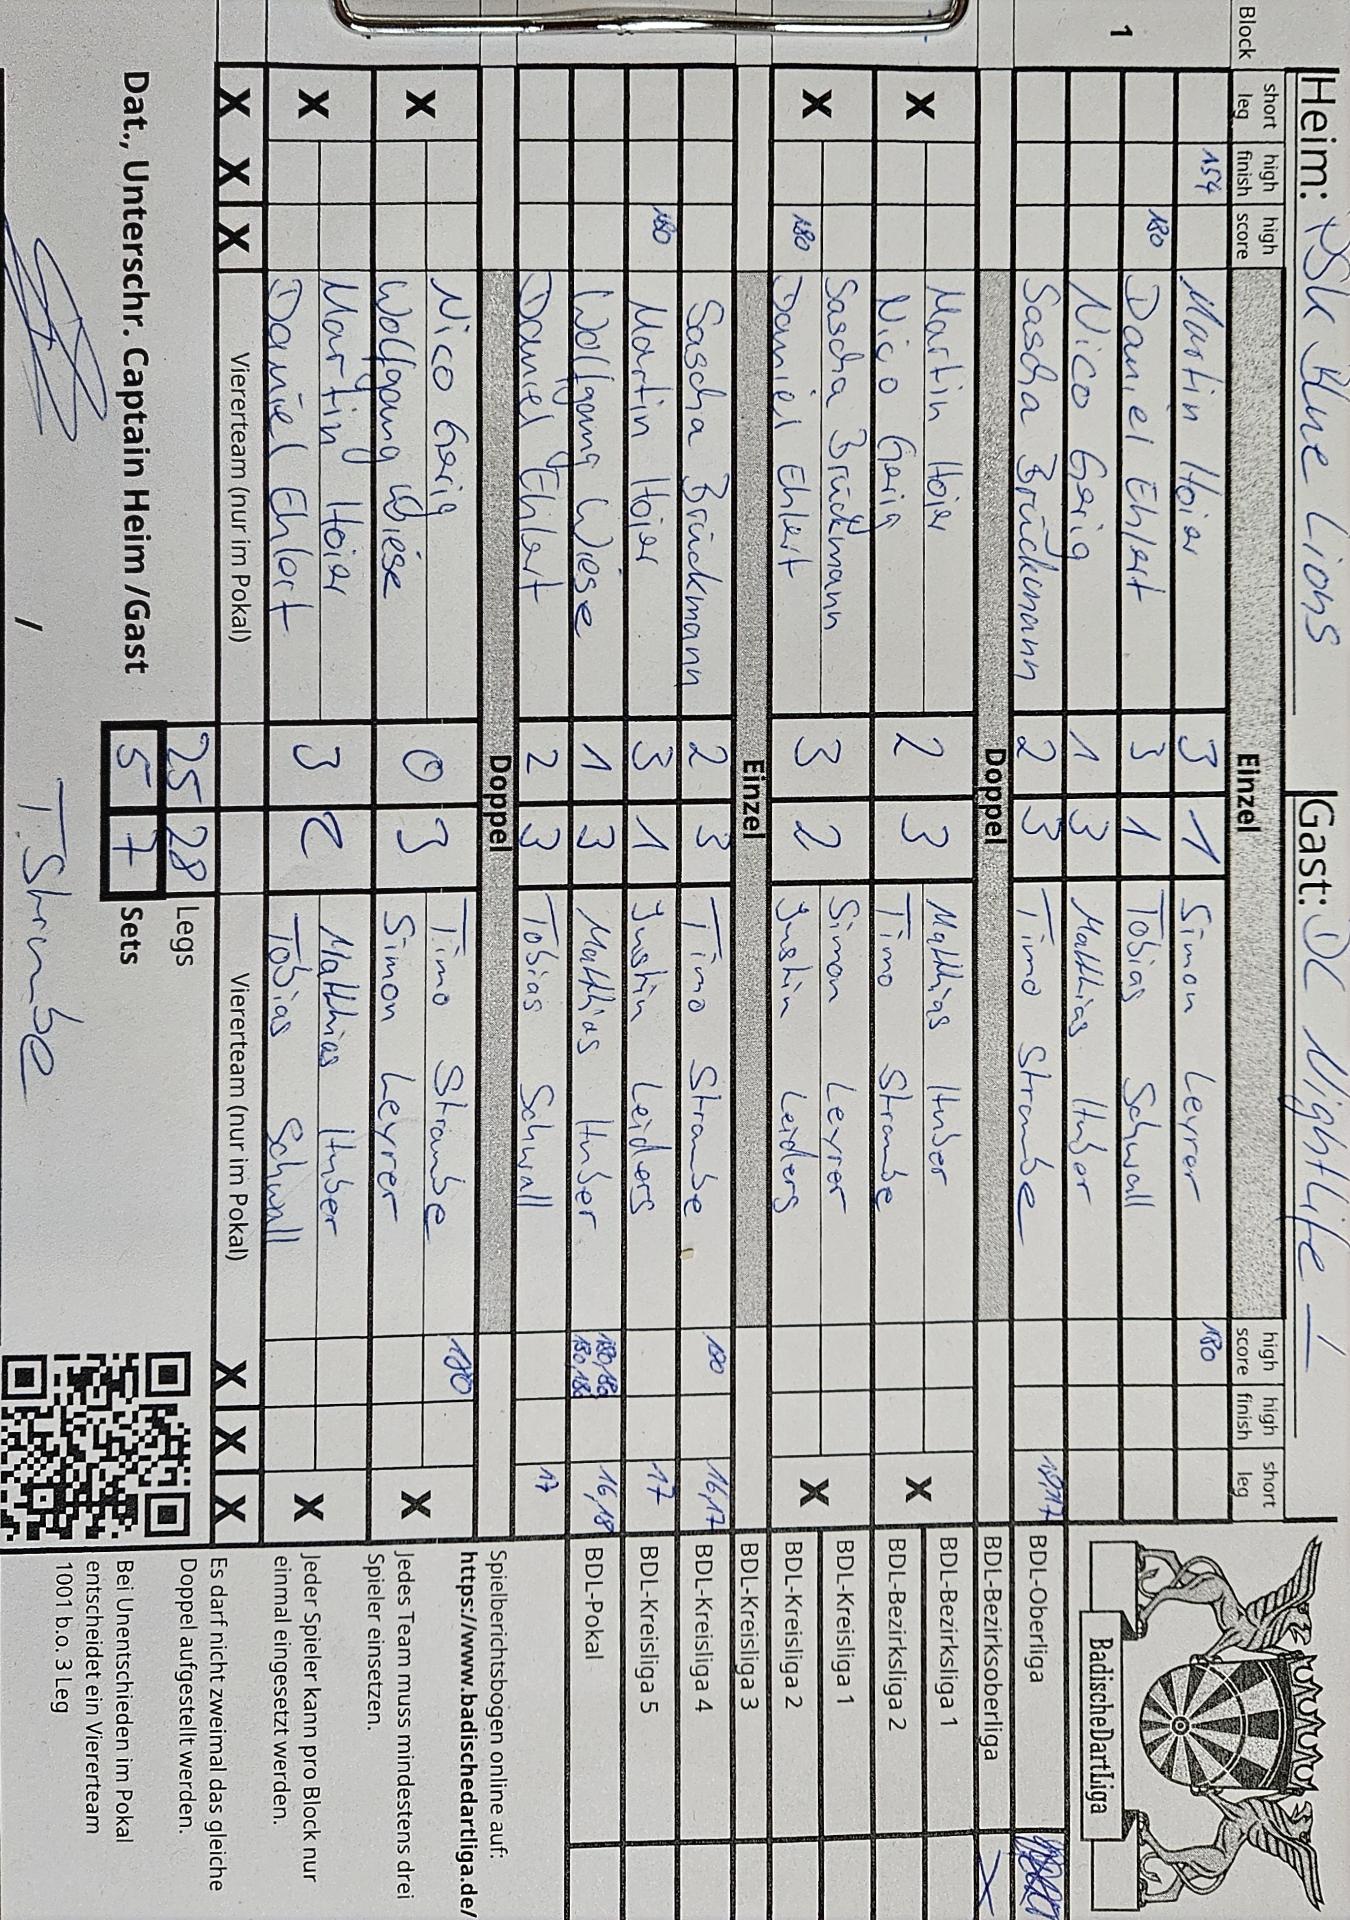 Heim: PSK Blue Lions Gast: DC Nightlife 1
Block short leg high finish high score Einzel high score high finish short leg
154 Martin Hoier 3 1 Simon Leyrer 180
1 180 Daniel Ehlert 3 1 Tobias Schwall
Nico Gerig 1 3 Matthias Huber
Sascha Brückmann 2 3 Timo Strambe
Doppel
X Martin Hoier 2 3 Matthias Huber X
Nico Gerig Timo Strambe
X Sascha Brückmann 3 2 Simon Leyrer X
180 Daniel Ehlert Justin Leiders
Einzel
Sascha Brückmann 2 3 Timo Strambe 180 16,17
180 Martin Hoier 3 1 Justin Leiders 17
Wolfgang Wiese 1 3 Matthias Huber 180,180 180,180 16,18
Daniel Ehlert 2 3 Tobias Schwall 17
Doppel
X Nico Gerig 0 3 Timo Strambe 180 X
Wolfgang Wiese Simon Leyrer
X Martin Hoier 3 2 Matthias Huber X
Daniel Ehlert Tobias Schwall
X X X Viererteam (nur im Pokal) Viererteam (nur im Pokal) X X X
25 28 Legs
Dat., Unterschr. Captain Heim /Gast 5 7 Sets
/ TStrambe
BadischeDartLiga
BDL-Oberliga
BDL-Bezirksoberliga X
BDL-Bezirksliga 1
BDL-Bezirksliga 2
BDL-Kreisliga 1
BDL-Kreisliga 2
BDL-Kreisliga 3
BDL-Kreisliga 4
BDL-Kreisliga 5
BDL-Pokal
Spielberichtsbogen online auf:
https://www.badischedartliga.de/
Jedes Team muss mindestens drei
Spieler einsetzen.
Jeder Spieler kann pro Block nur
einmal eingesetzt werden.
Es darf nicht zweimal das gleiche
Doppel aufgestellt werden.
Bei Unentschieden im Pokal
entscheidet ein Viererteam
1001 b.o. 3 Leg